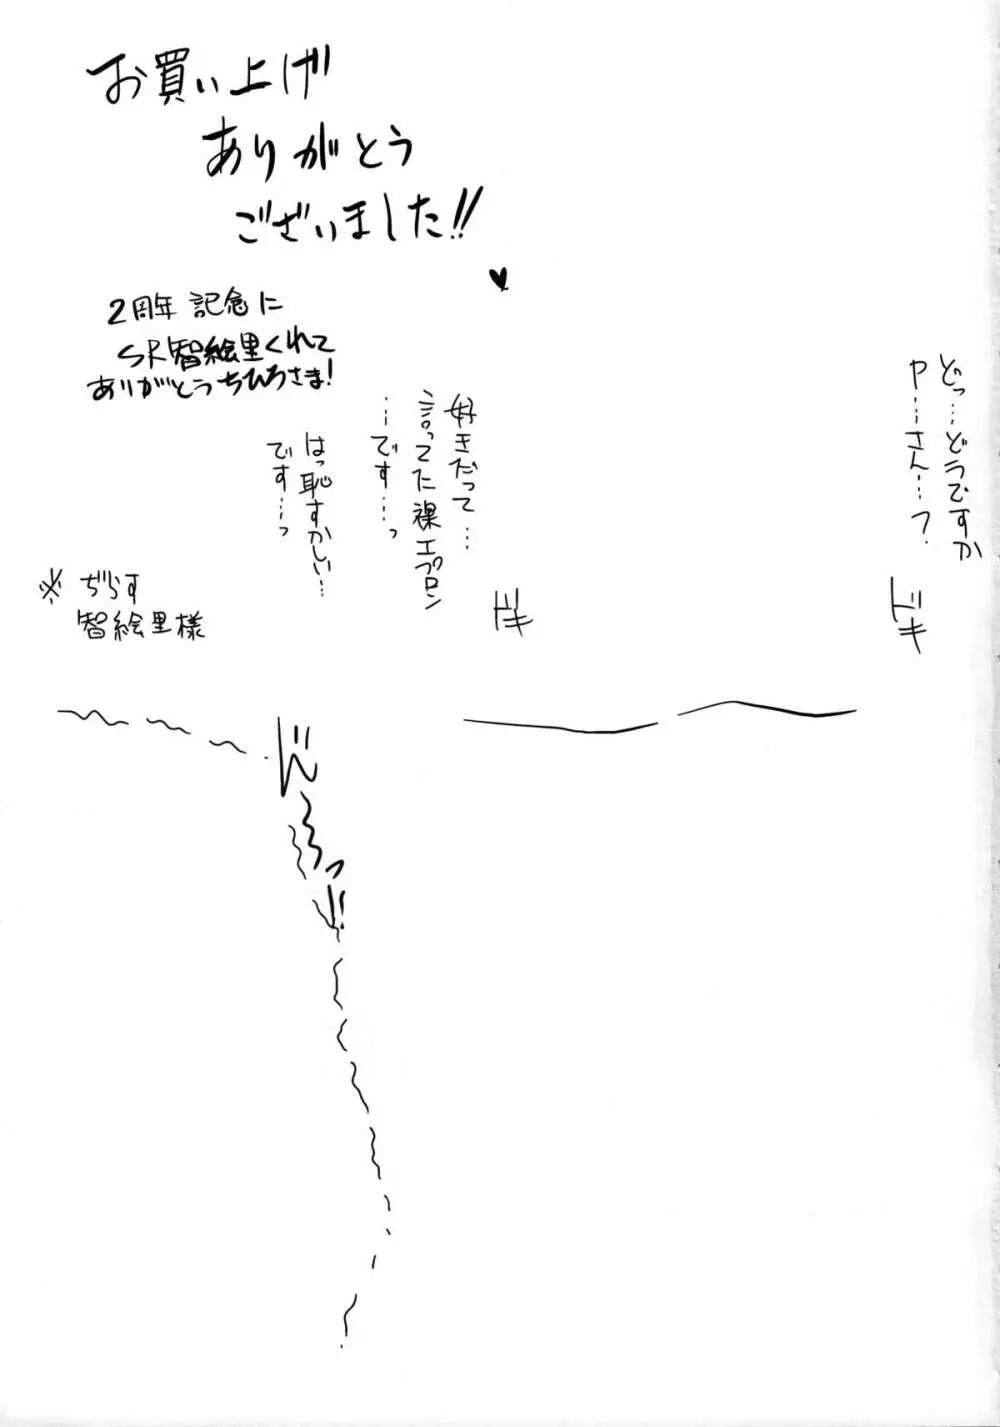 お買い上げ
ありがとう
ございました!!
2周年 記念に
SR智絵里くれて
ありがとうちひろさま!
どっ…どうですか
P…さん…?
ドキ
好きだって…
言ってた裸エプロン
…です…っ
ドキ
はっ恥すかしい…
です…っ
※ぢらす
智絵里様